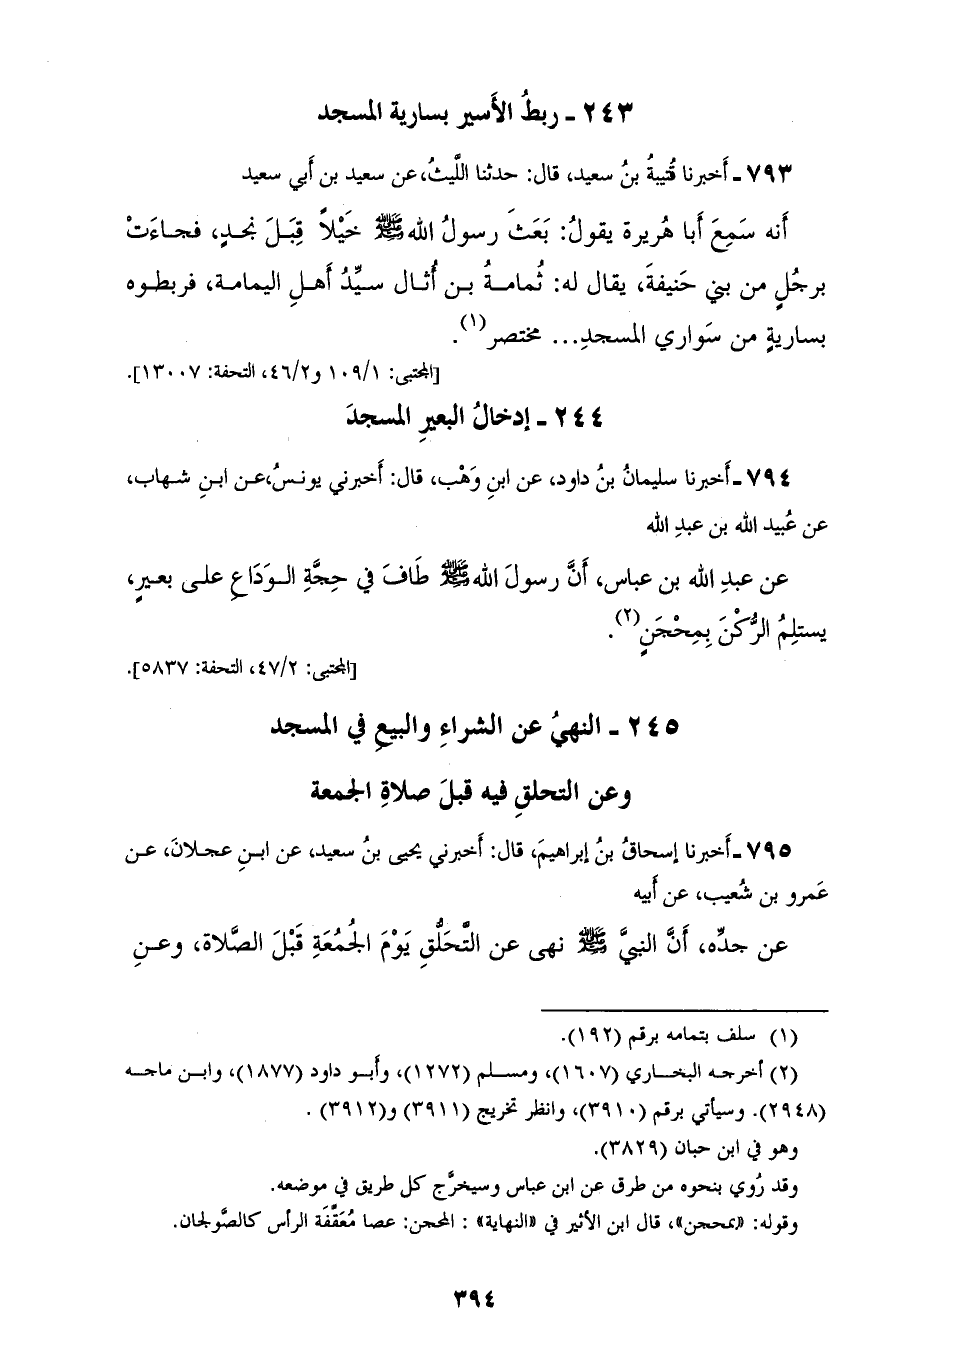 ٢٤٣ ـ ربطُ الأَسير بسارية المسجد
٧٩٣ ـ أَخبرنا قُتيبةُ بنُ سعيد، قال: حدثنا اللَّيثُ، عن سعيد بن أَبي سعيد
أَنه سَمِعَ أَبا هُريرة يقولُ: بَعَثَ رسولُ اللهﷺ خَيْلاً قِبَلَ نجدٍ، فجاءَتْ
برجُلٍ من بني حَنيفةَ، يقال له: ثُمامةُ بن أُثال سيِّدُ أَهلِ اليمامة، فربطوه
بساريةٍ من سَواري المسجدِ... مختصر(١).
[المجتبى: ١٠٩/١ و٤٦/٢، التحفة: ١٣٠٠٧].
٢٤٤ ـ إدخالُ البعيرِ المسجدَ
٧٩٤ ـ أَخبرنا سليمانُ بنُ داود، عن ابنِ وَهْب، قال: أَخبرني يونسُ، عن ابنِ شهاب،
عن عُبيد الله بن عبدِ الله
عن عبدِ الله بن عباس، أَنَّ رسولَ اللهﷺ طَافَ في حِجَّةِ الوَدَاعِ على بعيرٍ،
يستلِمُ الرُّكْنَ بِمِحْجَنٍ(٢).
[المجتبى: ٤٧/٢، التحفة: ٥٨٣٧].
٢٤٥ ـ النهيُ عن الشراءِ والبيعِ في المسجد
وعن التحلقِ فيه قبلَ صلاةِ الجمعة
٧٩٥ ـ أَخبرنا إسحاقُ بنُ إبراهيمَ، قال: أَخبرني يحيى بنُ سعيد، عن ابنِ عجلانَ، عن
عَمرو بن شُعيب، عن أَبيه
عن جدِّه، أَنَّ النبيَّ ﷺ نهى عن التَّحَلُّقِ يَوْمَ الجُمُعَةِ قَبْلَ الصَّلاة، وعنِ
(١) سلف بتمامه برقم (١٩٢).
(٢) أخرجه البخاري (١٦٠٧)، ومسلم (١٢٧٢)، وأبو داود (١٨٧٧)، وابن ماجه
(٢٩٤٨). وسيأتي برقم (٣٩١٠)، وانظر تخريج (٣٩١١) و(٣٩١٢) .
وهو في ابن حبان (٣٨٢٩).
وقد رُوي بنحوه من طرق عن ابن عباس وسيخرَّج كل طريق في موضعه.
وقوله: «بمحجن»، قال ابن الأثير في «النهاية» : المحجن: عصا مُعَقَّفَة الرأس كالصَّولجان.
٣٩٤